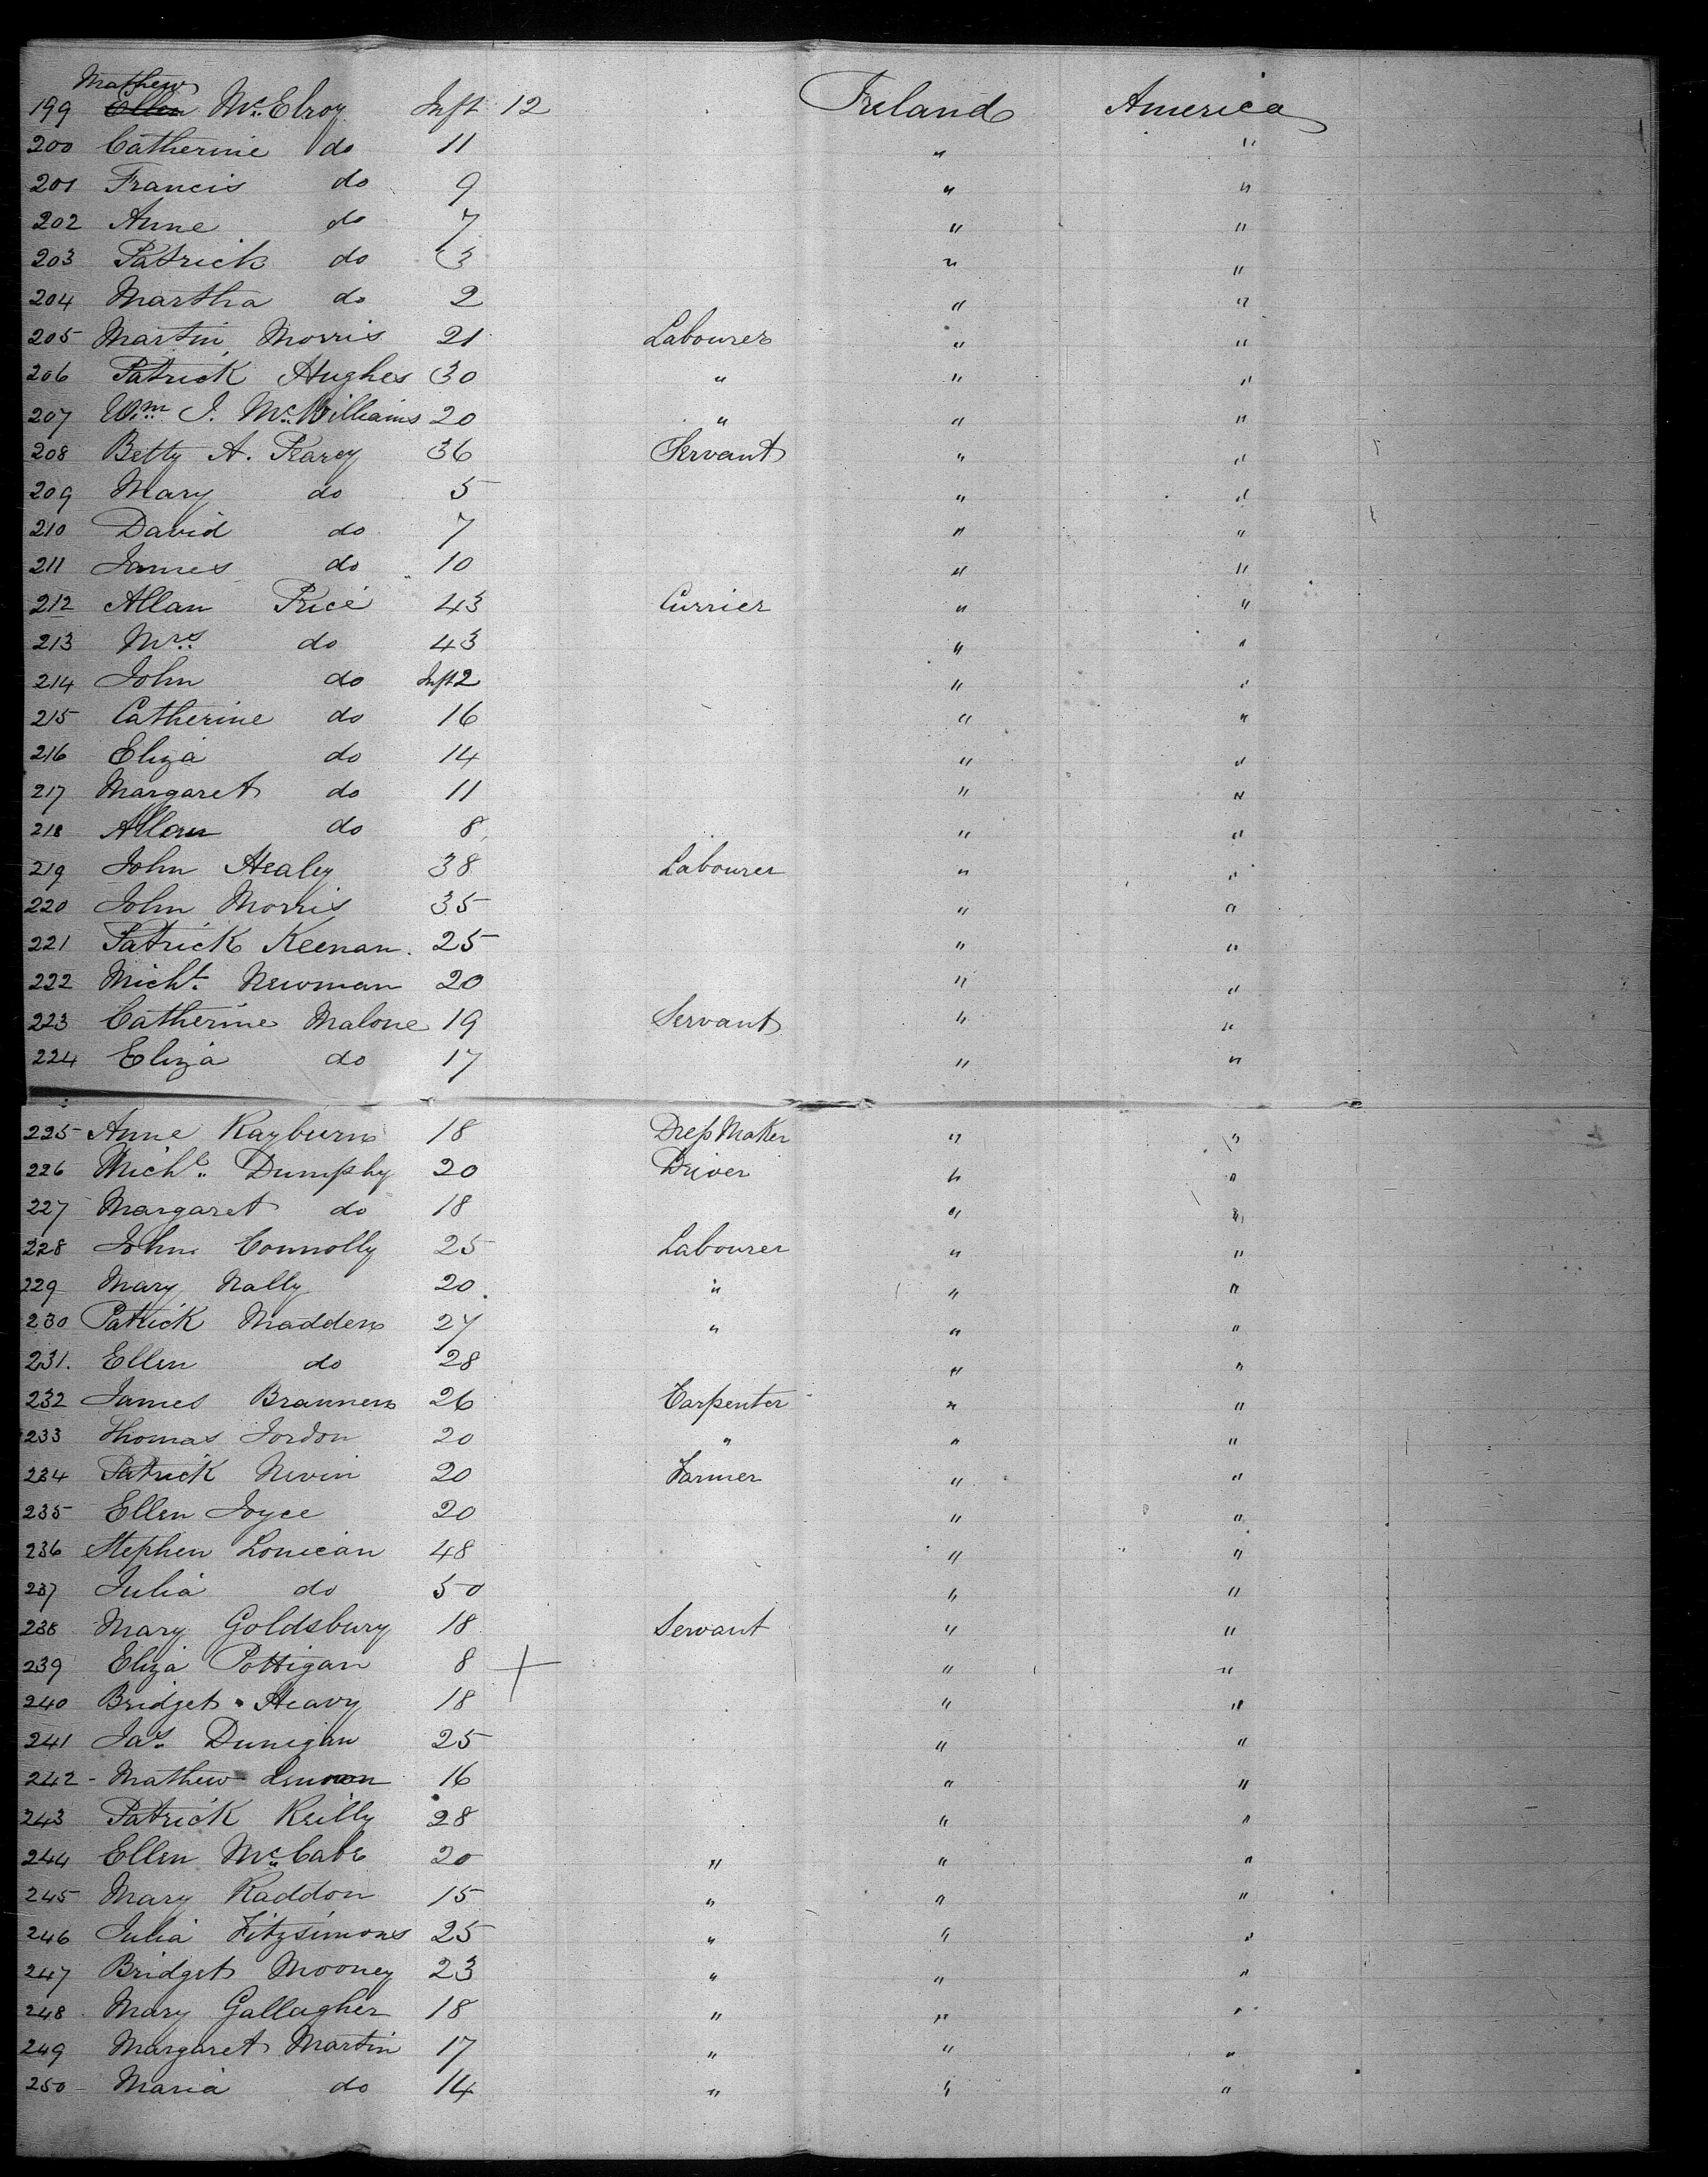 Mathew
199 Ellen McElroy Inft 12 Ireland America
200 Catherine do 11 " "
201 Francis do 9 " "
202 Anne do 7 " "
203 Patrick do 3 " "
204 Martha do 2 " "
205 Martin Morris 21 Labourer " "
206 Patrick Hughes 30 " " "
207 Wm J. McWilliams 20 " " "
208 Betty A. Pearey 36 Servant " "
209 Mary do 5 " "
210 David do 7 " "
211 James do 10 " "
212 Allan Price 43 Currier " "
213 Mrs do 43 " "
214 John do Inft 2 " "
215 Catherine do 16 " "
216 Eliza do 14 " "
217 Margaret do 11 " "
218 Allan do 8 " "
219 John Healey 38 Labourer " "
220 John Morris 35 " "
221 Patrick Keenan 25 " "
222 Michl Newman 20 " "
223 Catherine Malone 19 Servant " "
224 Eliza do 17 " "
225 Anne Rayburn 18 Dress Maker " "
226 Michl Dumphy 20 Driver " "
227 Margaret do 18 " "
228 John Connolly 25 Labourer " "
229 Mary Nally 20 " " "
230 Patrick Madden 27 " " "
231. Ellen do 28 " "
232 James Brannen 26 Carpenter " "
233 Thomas Jordon 20 " " "
234 Patrick Nevin 20 Farmer " "
235 Ellen Joyce 20 " "
236 Stephen Lonican 48 " "
237 Julia do 50 " "
238 Mary Goldsbury 18 Servant " "
239 Eliza Pottigan 8 + " "
240 Bridget Heavy 18 " "
241 Jas Dunigan 25 " "
242 - Mathew 16 " "
243 Patrick Reilly 28 " "
244 Ellen McCabe 20 " " "
245 Mary Raddon 15 " " "
246 Julia Fitzsimons 25 " " "
247 Bridget Mooney 23 " " "
248 Mary Gallagher 18 " " "
249 Margaret Martin 17 " " "
250 - Maria do 14 " " "